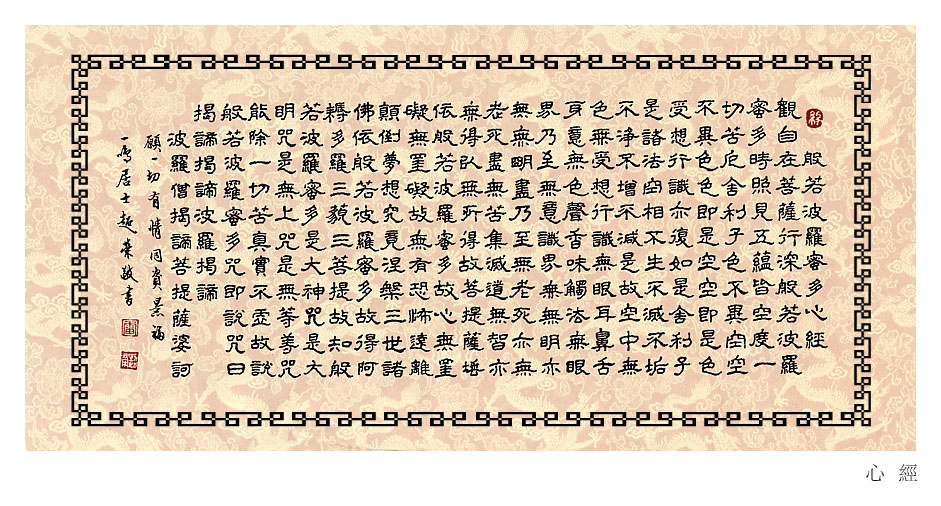 般若波羅蜜多心經
觀自在菩薩行深般若波羅
蜜多時照見五蘊皆空度一
切苦厄舍利子色不異空空
不異色色即是空空即是色
受想行識亦復如是舍利子
是諸法空相不生不滅不垢
不净不增不減是故空中無
色無受想行識無眼耳鼻舌
身意無色聲香味觸法無眼
界乃至無意識界無無明亦
無無明盡乃至無老死亦無
老死盡無苦集滅道無智亦
無得以無所得故菩提薩埵
依般若波羅蜜多故心無罣
礙無罣礙故無有恐怖遠離
顛倒夢想究竟涅槃三世諸
佛依般若波羅蜜多故得阿
耨多羅三藐三菩提故知般
若波羅蜜多是大神咒是大
明咒是無上咒是無等等咒
能除一切苦真實不虛故說
般若波羅蜜多咒即說咒曰
揭諦揭諦波羅揭諦
波羅僧揭諦菩提薩婆訶
願一切有情同資景福
居士趙敬書
心 經